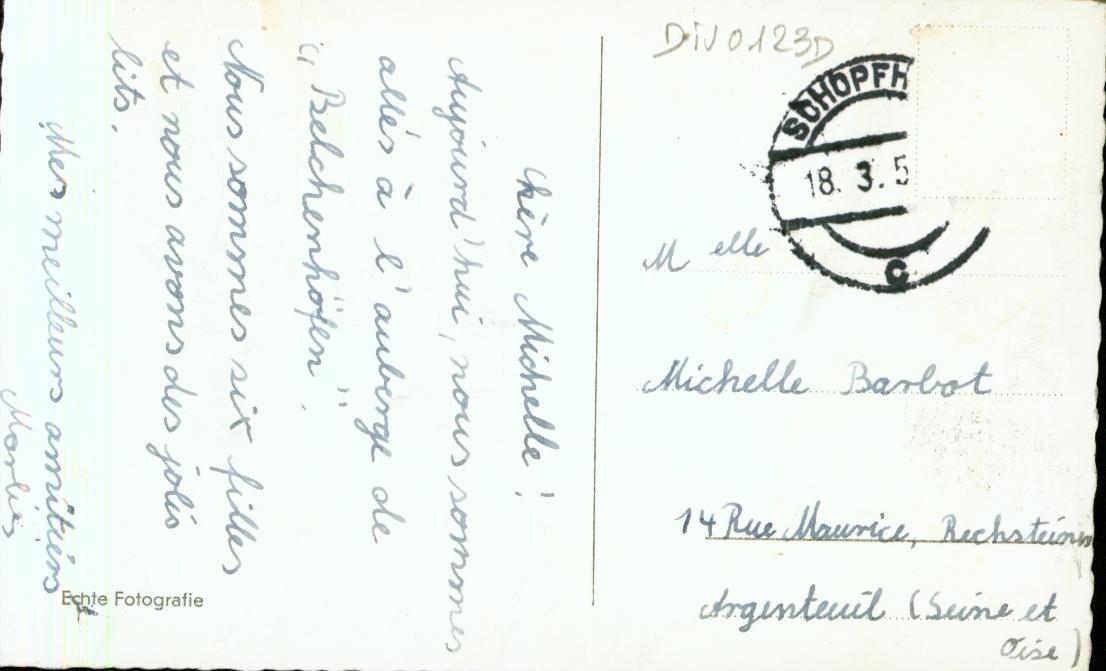 Chère Michelle !
Aujourd'hui, nous sommes
allés à l'auberge de
"Belchenhöfen".
Nous sommes six filles
et nous avons des jolis
lits.
Mes meilleurs amitiérs
Marlies
Echte Fotografie
DIV0123D
SCHOPFH
18. 3. 5
c
M elle
Michelle Barbot
14 Rue Maurice, Rechsteiner
Argenteuil (Seine et
Oise)